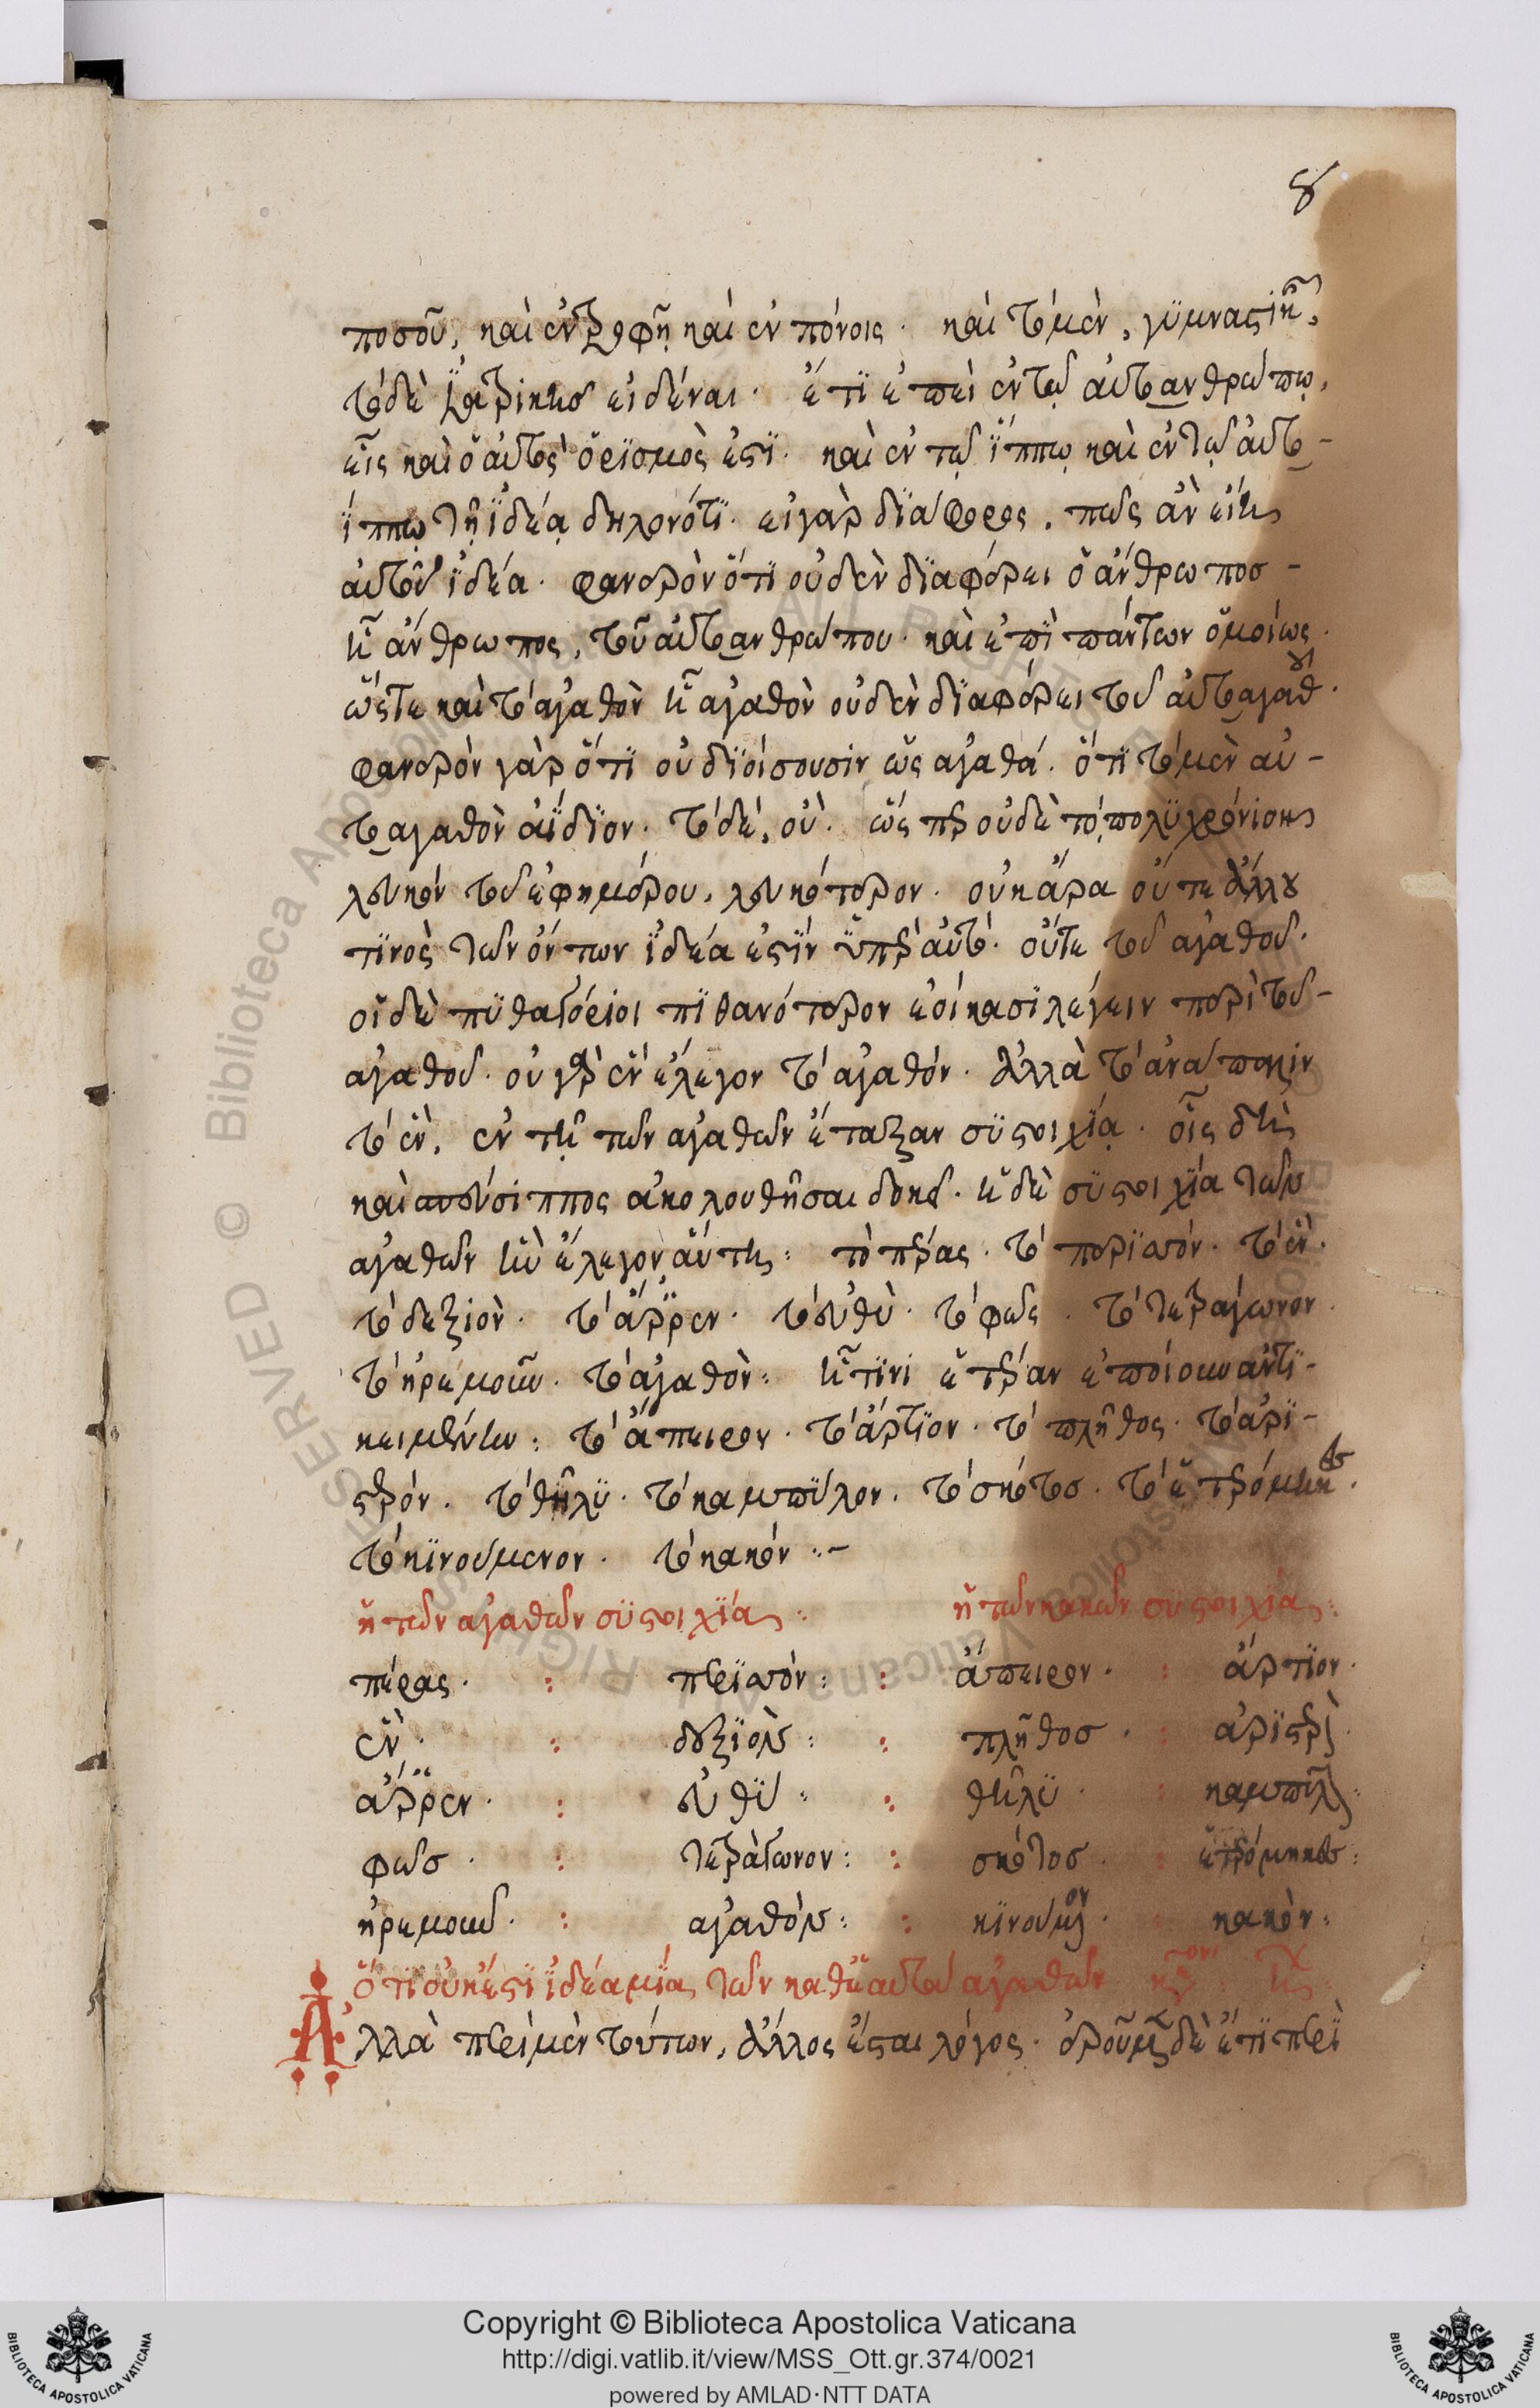 8
ποσοῦ, καὶ ἐν τροφῇ καὶ ἐν πόνοις. καὶ τὸ μὲν, γϋμναστικῆ,
τὸ δὲ ἰατρικῆσ εἰδέναι. ἔτϊ ἐπεὶ ἐν τῷ αὐτοανθρώπῳ,
εἷς καὶ ὁ αὐτὸς ὁρϊσμὸς ἐστϊ. καὶ ἐν τῷ ἵππῳ καὶ ἐν τῷ αὐτο-
ΐππῳ τῇ ϊδέᾳ δηλονότϊ. εἰ γὰρ δϊάφορος, πῶς ἂν εἴη
αὐτοῦ ϊδέα. φανερὸν ὅτϊ οὐδὲν δϊαφέρει ὁ ἄνθρωποσ-
ᾗ ἄνθρωπος, τοῦ αὐτοανθρώπου. καὶ ἐπϊ πάντων ὁμοίως.
ὥστε καὶ τὸ ἀγαθὸν ᾗ ἀγαθὸν οὐδὲν δϊαφέρει τοῦ αὐτοαγαθοῦ.
φανερὸν γὰρ ὅτϊ οὐ δϊοίσουσιν ὡς ἀγαθά. ὅτϊ τὸ μὲν αὐ-
τοαγαθὸν ἀΐδϊον. τὸ δέ, οὔ. ὥσπερ οὐδὲ τὸ πολϋχρόνιον
λευκὸν τοῦ ἐφημέρου, λευκότερον. οὐκ ἄρα οὔτε ἄλλου
τϊνὸς τῶν ὄντων ϊδέα ἐστϊν ὑπὲρ αὐτό. οὔτε τοῦ ἀγαθοῦ.
οἱ δὲ πϋθαγόρειοι πϊθανότερον ἐοίκασϊ λέγειν περὶ τοῦ-
ἀγαθοῦ. οὐ γὰρ ἓν ἔλεγον τὸ ἀγαθόν. ἀλλὰ τὸ ἀνάπαλιν
τὸ ἓν, ἐν τῇ τῶν ἀγαθῶν ἔταξαν σϋστοιχίᾳ. οἷς δὴ
καὶ σπεύσιππος ἀκολουθῆσαι δοκεῖ. ἡ δὲ σϋστοιχϊα τῶν
ἀγαθῶν ἣν ἔλεγον αὕτη: τὸ πέρας. τὸ περϊσσόν. τὸ ἕν.
τὸ δεξιὸν. τὸ ἄρρεν. τὸ εὐθὺ. τὸ φῶς. τὸ τετράγωνον.
τὸ ἠρεμοῦν. τὸ ἀγαθὸν: ᾗ τϊνι ἑτέραν ἐποίουν ἀντϊ-
κειμένην: τὸ ἄπειρον. τὸ ἄρτϊον. τὸ πλῆθος. τὸ ἀρϊ-
στερόν. τὸ θῆλϋ. τὸ καμπϋλον. τὸ σκότοσ. τὸ ἑτερόμηκεσ.
τὸ κϊνούμενον. τὸ κακόν :-
ἡ τῶν ἀγαθῶν σϋστοιχϊα: ἡ τῶν κακῶν σϋστοιχϊα:
πέρας. : περϊσσόν: : ἄπειρον. : ἄρτϊον.
ἓν. : δεξϊόν: : πλῆθοσ. : ἀρϊστερὸν.
ἄρρεν. : εὐθϋ: : θῆλϋ. : καμπϋλον:
φῶσ. : τετράγωνον: : σκότοσ. : ἑτερόμηκεσ:
ἠρεμοῦν. : ἀγαθόν: : κϊνούμενον. : κακὸν:
ὅτϊ οὐκ ἔστϊ ϊδέα μϊα τῶν καθ' ἑαυτὰ ἀγαθῶν
Ἀλλὰ περὶ μὲν τούτων, ἄλλος ἔσται λόγος. ἐροῦμεν δὲ ἔτϊ περϊ
Copyright © Biblioteca Apostolica Vaticana
http://digi.vatlib.it/view/MSS_Ott.gr.374/0021
powered by AMLAD·NTT DATA